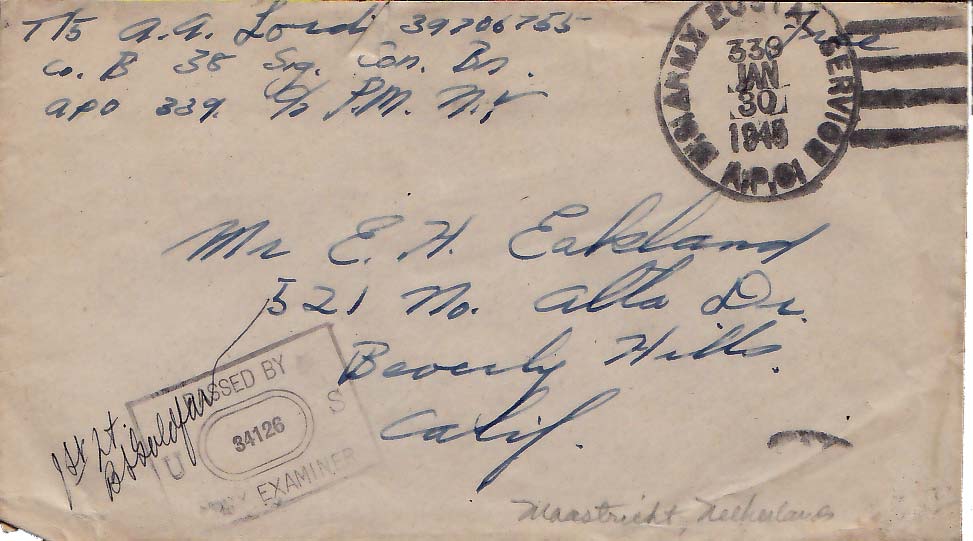 T/5 A.A. Lordi 39706755
Co. B 38 Sig. Con. Bn.
APO 339 c/o P.M. N.Y.
Free
U.S. ARMY POSTAL SERVICE
339
JAN
30
1945
A.P.O.
Mr E. H. Eakland
521 No. Alta Dr.
Beverly Hills.
Calif.
PASSED BY
U S
34126
ARMY EXAMINER
1st Lt.
B Goldfarb
Maastricht, Netherlands